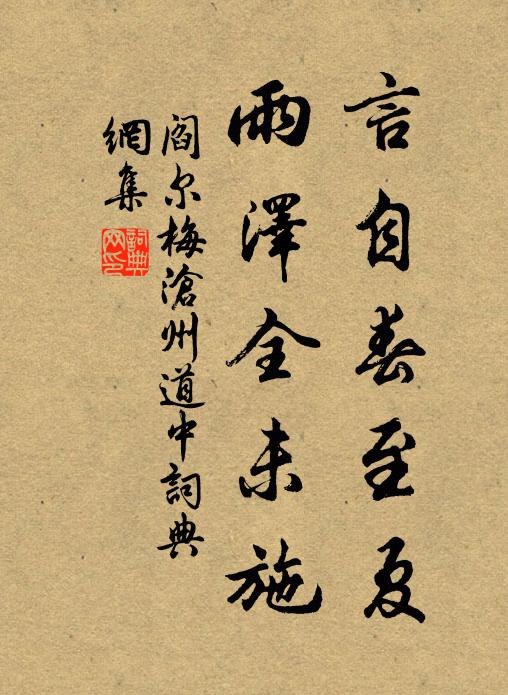 言自春至夏
雨澤全未施
閻尔梅滄州道中詞典
網集
詞典
网印